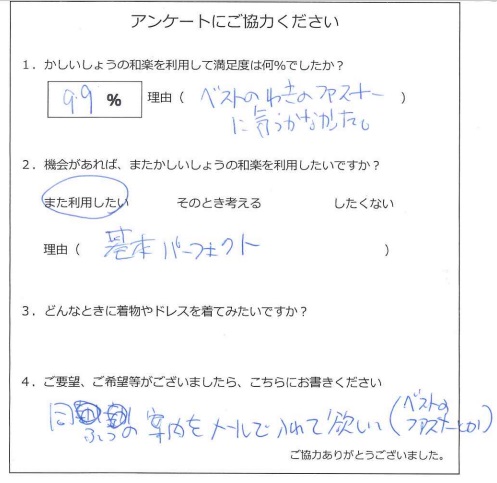 アンケートにご協力ください
1．かしいしょうの和楽を利用して満足度は何％でしたか？
99 % 理由（ ベストのわきのファスナー ）
に気づかなかた。
2．機会があれば、またかしいしょうの和楽を利用したいですか？
また利用したい そのとき考える したくない
理由（ 基本パーフェクト ）
3．どんなときに着物やドレスを着てみたいですか？
4．ご要望、ご希望等がございましたら、こちらにお書きください
の案内をメールで入れて欲しい（ベストの
ファスナーとか）
ご協力ありがとうございました。